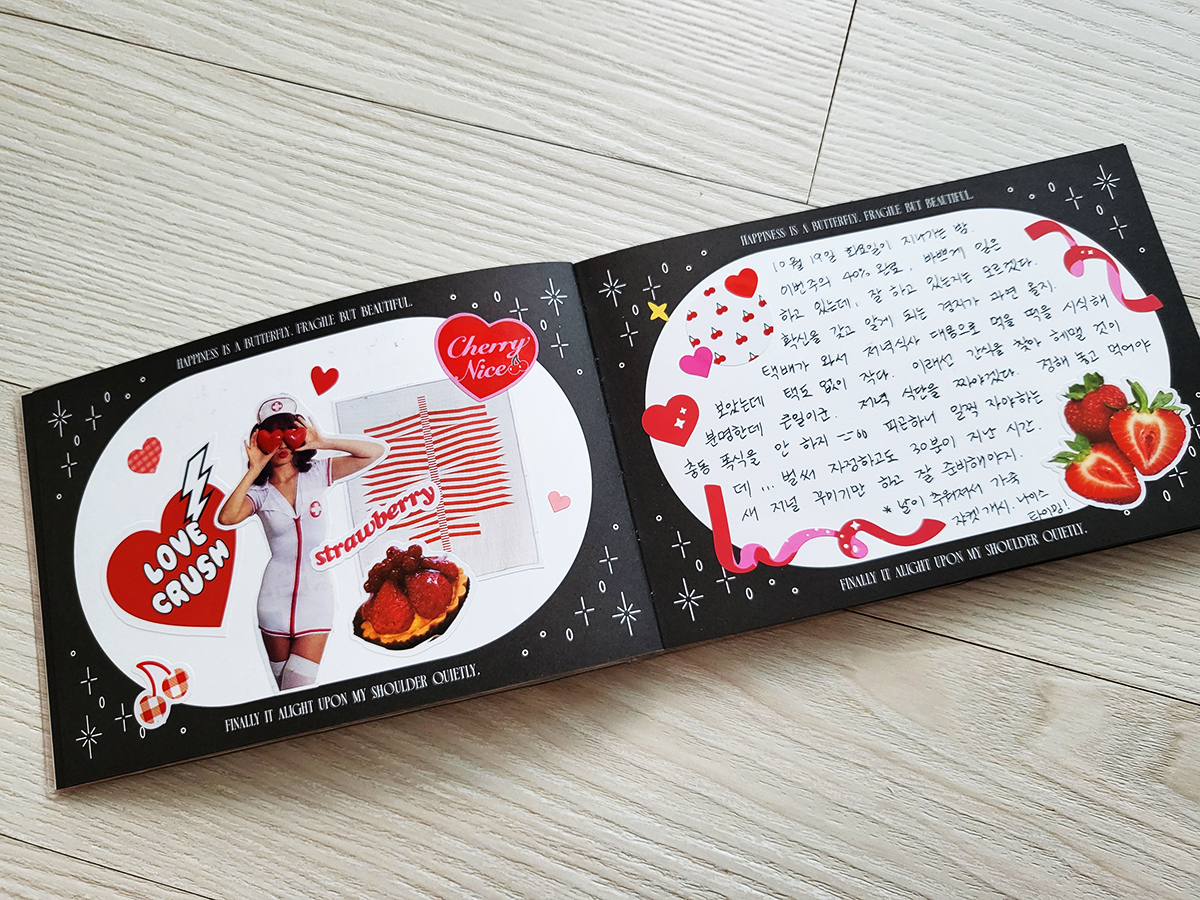 HAPPINESS IS A BUTTERFLY. FRAGILE BUT BEAUTIFUL.
Cherry
Nice
LOVE
CRUSH
strawberry
FINALLY IT ALIGHT UPON MY SHOULDER QUIETLY.
HAPPINESS IS A BUTTERFLY. FRAGILE BUT BEAUTIFUL.
10월 19일 화요일이 지나가는 밤.
이번주의 40% 완료. 바쁘게 일은
하고 있는데, 잘 하고 있는지는 모르겠다.
확신을 갖고 알게 되는 경지가 과연 올지.
택배가 와서 저녁식사 대용으로 먹을 떡을 시식해
보았는데 택도 없이 작다. 이래선 간식을 찾아 헤맬 것이
분명한데 큰일이군. 저녁 식단을 짜야겠다. 정해 놓고 먹어야
충동 폭식을 안 하지 피곤하니 일찍 자야하는
데... 벌써 자정하고도 30분이 지난 시간.
새 저널 꾸미기만 하고 잘 준비해야지.
* 날이 추워져서 가죽
자켓 개시. 나이스
타이밍!
FINALLY IT ALIGHT UPON MY SHOULDER QUIETLY.